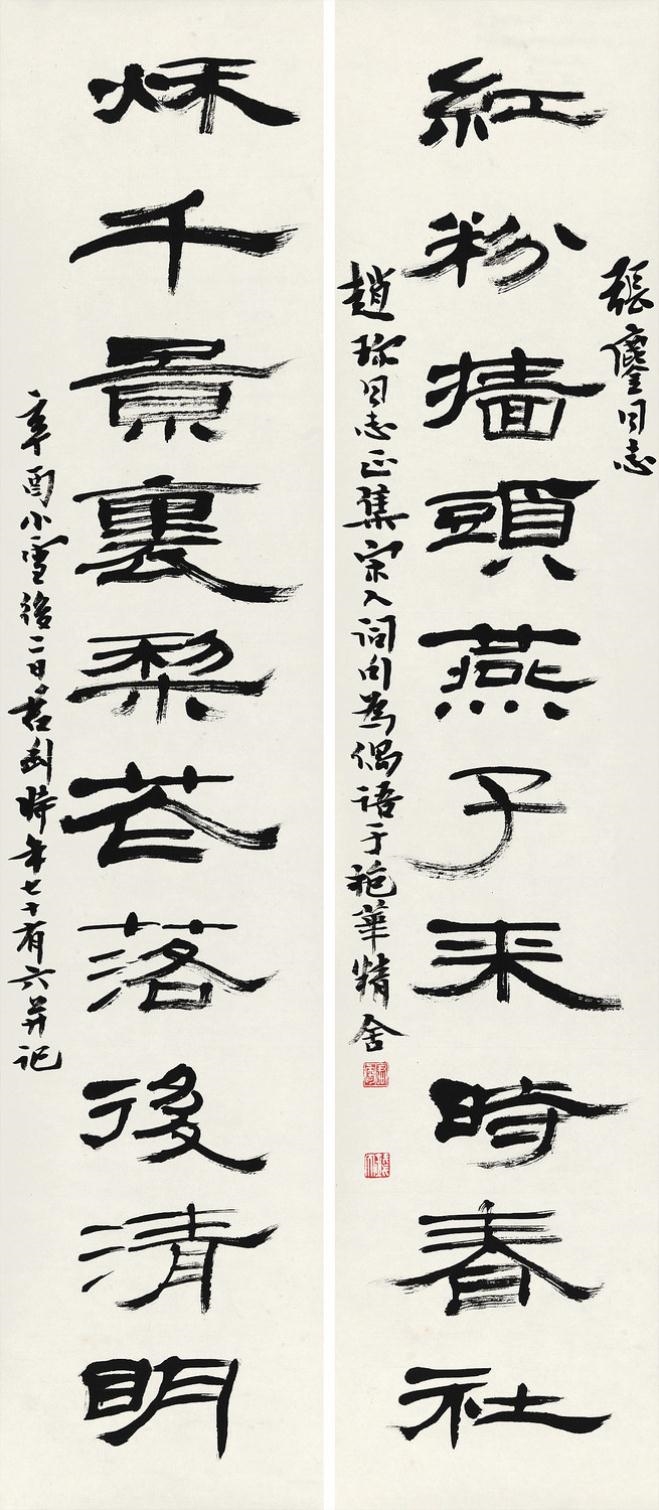 張鏖同志
紅粉牆頭燕子来時春社
趙同志正集宋人詞句為偶語于抱華精舍
秌千景裏棃花落後清明
辛酉小雪後二日君匋時年七十有六并記